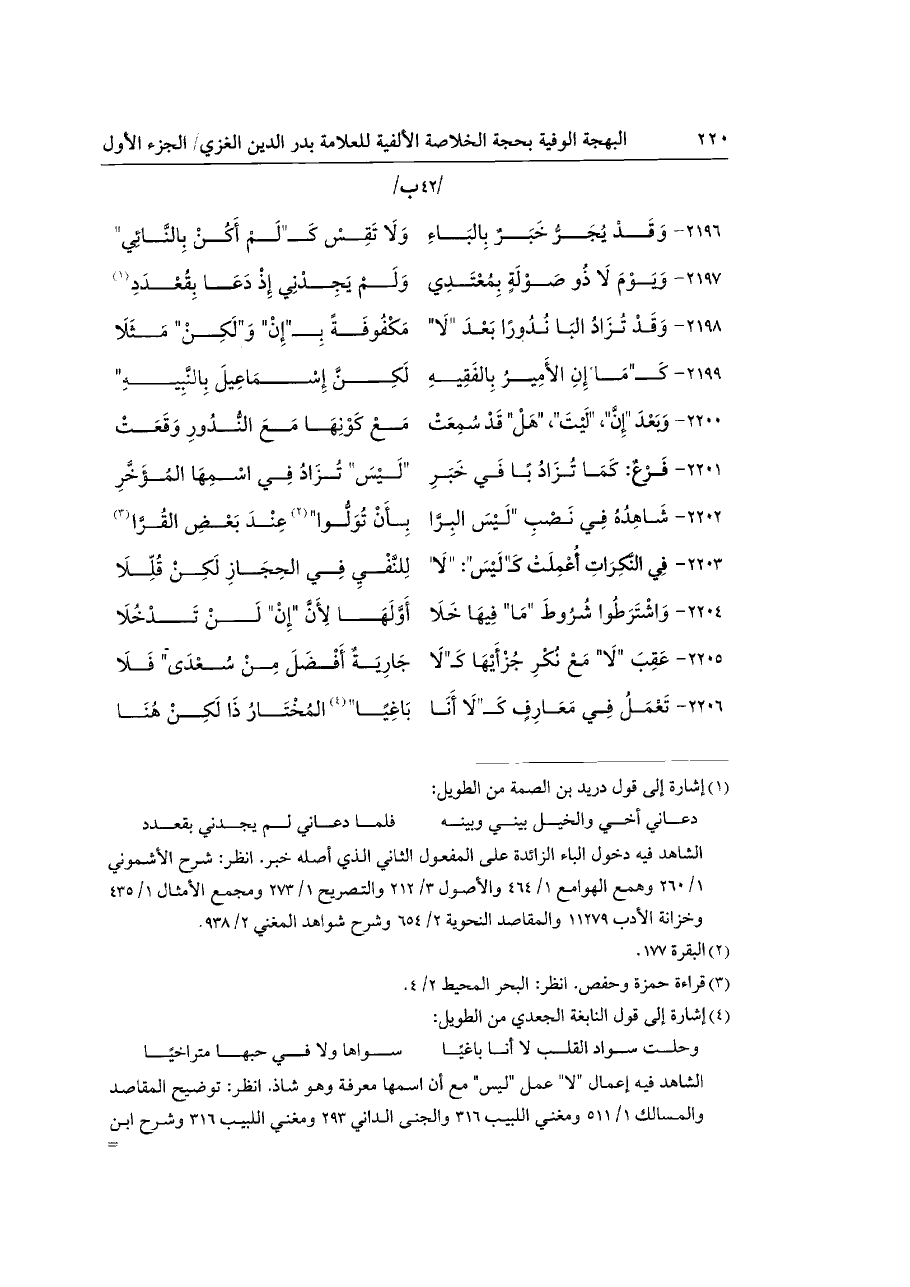 ٢٢٠ البهجة الوفية بحجة الخلاصة الألفية للعلامة بدر الدين الغزي/ الجزء الأول
/٤٢ب/
٢١٩٦- وَقَدْ يُجَرُّ خَبَرٌ بِالبَاءِ وَلَا تَقِسْ كَـ"لَمْ أَكُنْ بِالنَّائِي"
٢١٩٧- وَيَوْمَ لَا ذُو صَوْلَةٍ بِمُعْتَدِي وَلَمْ يَجِدْنِي إِذْ دَعَا بِقُعْدَدِ(١)
٢١٩٨- وَقَدْ تُزَادُ البَا نُدُورًا بَعْدَ "لَا" مَكْفُوفَةً بِـ"إِنْ" وَ"لَكِنْ" مَثَلَا
٢١٩٩- كَـ"مَا إِنِ الأَمِيرُ بِالفَقِيهِ لَكِنَّ إِسْمَاعِيلَ بِالنَّبِيهِ"
٢٢٠٠- وَبَعْدَ "إِنَّ"، "لَيْتَ"، "هَلْ" قَدْ سُمِعَتْ مَعْ كَوْنِهَا مَعَ النُّدُورِ وَقَعَتْ
٢٢٠١- فَرْعٌ: كَمَا تُزَادُ بًا فَي خَبَرِ "لَيْسَ" تُزَادُ فِي اسْمِهَا المُؤَخَّرِ
٢٢٠٢- شَاهِدُهُ فِي نَصْبِ "لَيْسَ البِرَّا بِأَنْ تُوَلُّوا"(٢) عِنْدَ بَعْضِ القُرَّا(٣)
٢٢٠٣- فِي النَّكِرَاتِ أُعْمِلَتْ كَـ"لَيْسَ": "لَا" لِلنَّفْيِ فِي الحِجَازِ لَكِنْ قُلِّلَا
٢٢٠٤- وَاشْتَرَطُوا شُرُوطَ "مَا" فِيهَا خَلَا أَوَّلَهَا لِأَنَّ "إِنْ" لَنْ تَدْخُلَا
٢٢٠٥- عَقِبَ "لَا" مَعْ نُكْرِ جُزْأَيْهَا كَـ"لَا جَارِيَةٌ أَفْضَلَ مِنْ سُعْدَى" فَلَا
٢٢٠٦- تَعْمَلُ فِي مَعَارِفٍ كَـ"لَا أَنَا بَاغِيًا"(٤) المُخْتَارُ ذَا لَكِنْ هُنَا
(١) إشارة إلى قول دريد بن الصمة من الطويل:
دعاني أخي والخيل بيني وبينه فلما دعاني لم يجدني بقعدد
الشاهد فيه دخول الباء الزائدة على المفعول الثاني الذي أصله خبر. انظر: شرح الأشموني
١/ ٢٦٠ وهمع الهوامع ١/ ٤٦٤ والأصول ٣/ ٢١٢ والتصريح ١/ ٢٧٣ ومجمع الأمثال ١/ ٤٣٥
وخزانة الأدب ١١٢٧٩ والمقاصد النحوية ٢/ ٦٥٤ وشرح شواهد المغني ٢/ ٩٣٨.
(٢) البقرة ١٧٧.
(٣) قراءة حمزة وحفص. انظر: البحر المحيط ٢/ ٤.
(٤) إشارة إلى قول النابغة الجعدي من الطويل:
وحلت سواد القلب لا أنا باغيًا سواها ولا في حبها متراخيًا
الشاهد فيه إعمال "لا" عمل "ليس" مع أن اسمها معرفة وهو شاذ. انظر: توضيح المقاصد
والمسالك ١/ ٥١١ ومغني اللبيب ٣١٦ والجنى الداني ٢٩٣ ومغني اللبيب ٣١٦ وشرح ابن
=